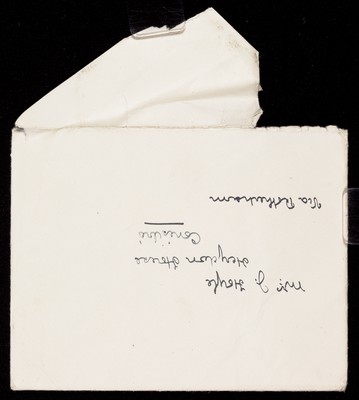 Mr J. Hoyle
Heydon House
Conisbro
Via Rotherham